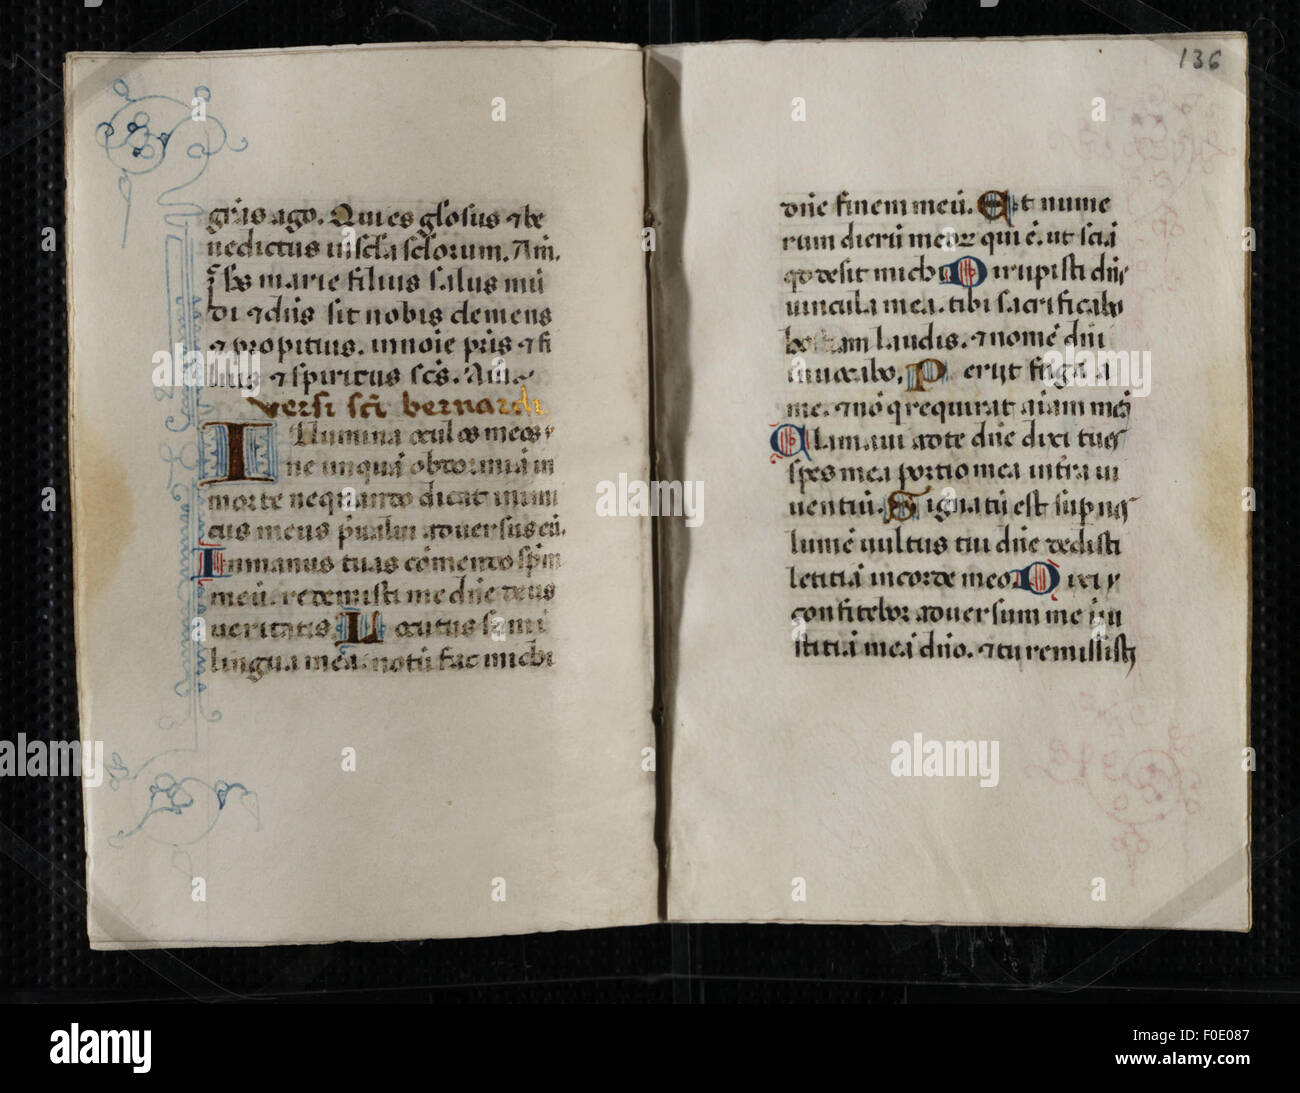 gr̄as ago. Qui es gl̄osus ⁊ be
nedictus in scl̄a scl̄orum. Am̄.
marie filius salus mū
di ⁊ dn̄s sit nobis clemens
⁊ propitius. in noīe pr̄is ⁊ fi
lius ⁊ spiritus sc̄s. Am̄.
versi sc̄i bernardi
Illumina oculos meos
ne unquā obdormiā in
morte ne quando dicat inimi
cus meus p̄ualui aduersus eū.
In manus tuas cōmendo spm̄
meū. redemisti me dn̄e deus
ueritatis. Locutus sum i
lingua mea. notū fac michi
136
dn̄e finem meū. Et nume
rum dierū meoꝝ qui ē. ut sciā
qd desit michi. Dirupisti dn̄e
uincula mea. tibi sacrificabo
hostiam laudis. ⁊ nomē dn̄i
inuocabo. Periit fuga a
me. ⁊ nō ē q requirat aīam meā
Clamaui ad te dn̄e dixi tu es
spes mea portio mea in tr̄a ui
uentiū. Signatū est sup nos
lumē uultus tui dn̄e dedisti
letitiā in corde meo. Dixi
confitebor aduersum me iniu
stitiā meā dn̄o. ⁊ tu remisisti
alamy stock photo
alamy
Image ID: F0E087
www.alamy.com